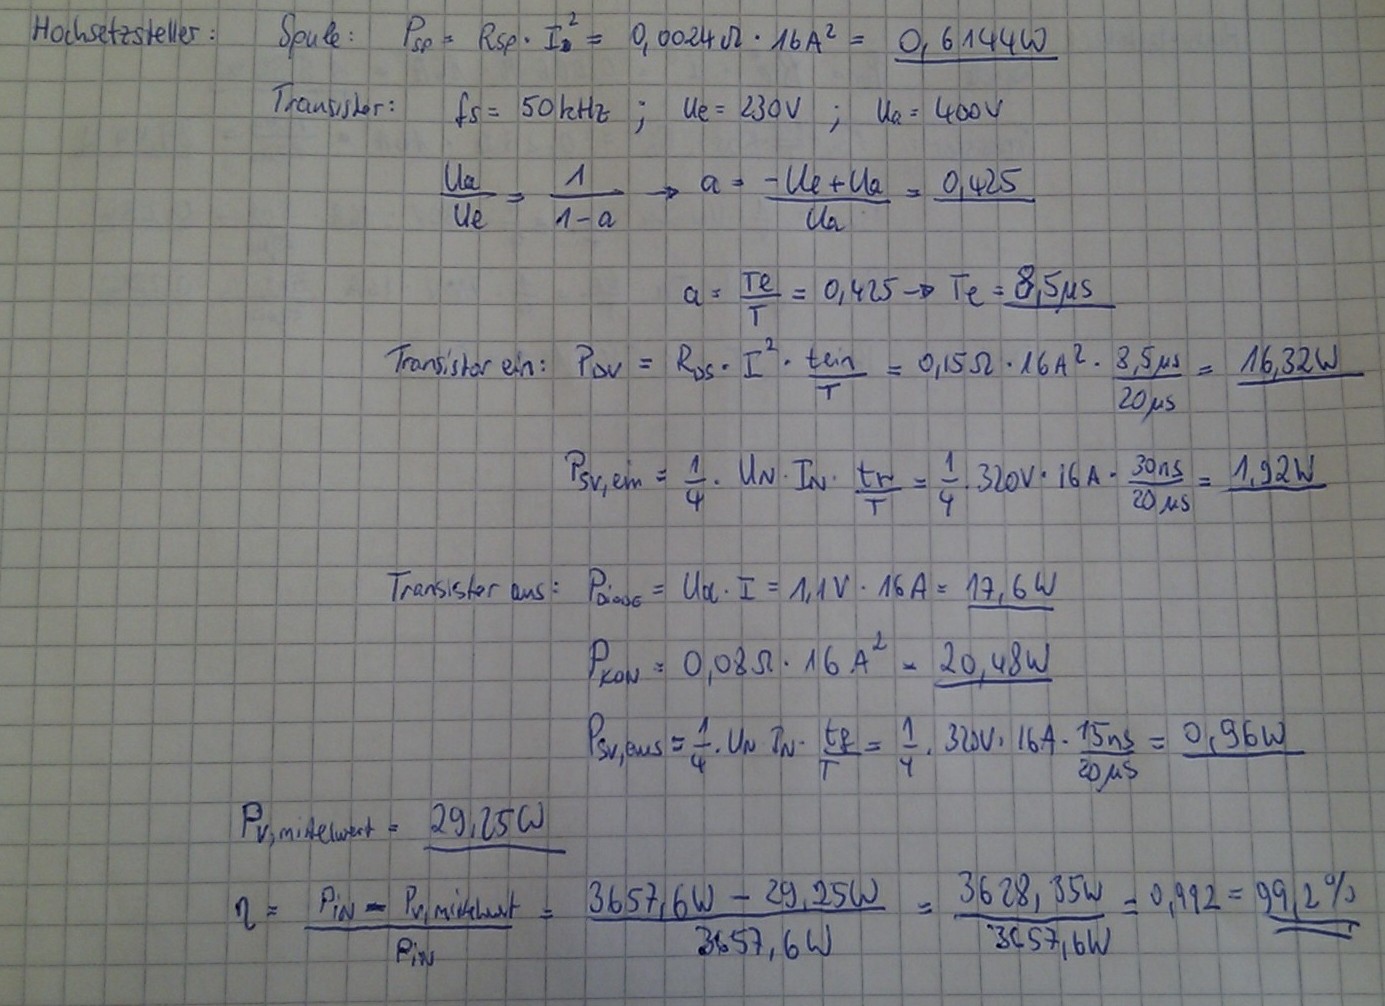 Hochsetzsteller: Spule: P_Sp = R_Sp · I² = 0,0024Ω · 16A² = 0,6144W
Transistor: fs = 50kHz ; Ue = 230V ; Ua = 400V
Ua/Ue = 1/(1-a) → a = (-Ue+Ua)/Ua = 0,425
a = Te/T = 0,425 → Te = 8,5µs
Transistor ein: P_DV = R_DS · I² · tein/T = 0,15Ω · 16A² · 8,5µs/20µs = 16,32W
P_SV,ein = 1/4 · U_N · I_N · tr/T = 1/4 · 320V · 16A · 30ns/20µs = 1,92W
Transistor aus: P_Diode = Ud · I = 1,1V · 16A = 17,6W
P_KON = 0,08Ω · 16A² = 20,48W
P_SV,aus = 1/4 · U_N I_N · tf/T = 1/4 · 320V · 16A · 15ns/20µs = 0,96W
P_V,mittelwert = 29,25W
η = (P_IN - P_V,mittelwert)/P_IN = (3657,6W - 29,25W)/3657,6W = 3628,35W/3657,6W = 0,992 = 99,2%